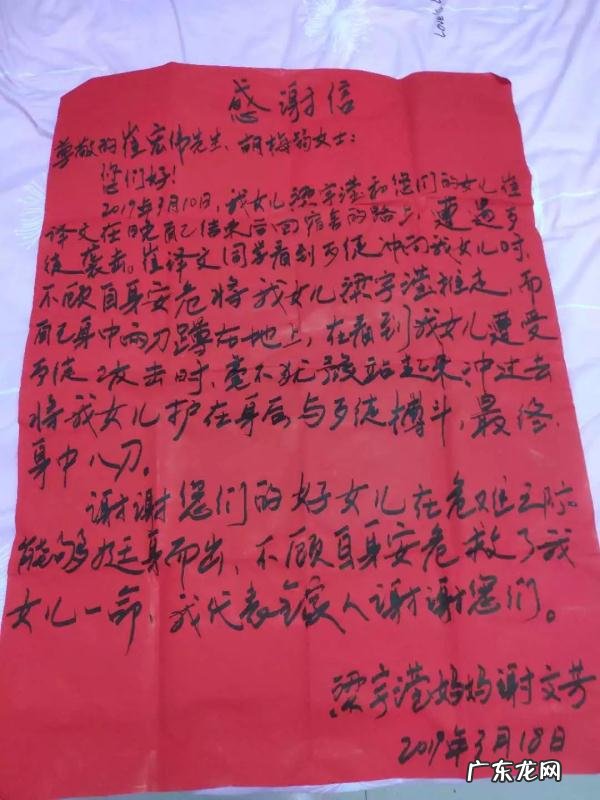 LOVE
感谢信
尊敬的崔宏伟先生、胡梅韵女士:
您们好!
2019年3月10日,我女儿梁宇滢和您们的女儿崔
译文在晚自己结束后回宿舍的路上,遭遇歹
徒袭击。崔译文同学看到歹徒冲向我女儿时,
不顾自身安危将我女儿梁宇滢推走,而
自己身中两刀蹲在地上,在看到我女儿遭受
歹徒攻击时,毫不犹豫站起来冲过去
将我女儿护在身后与歹徒搏斗,最终
身中八刀。
谢谢您们的好女儿在危难之际
能够挺身而出,不顾自身安危救了我
女儿一命,我代表全家人谢谢您们。
梁宇滢妈妈谢文芳
2019年3月18日
广东龙网